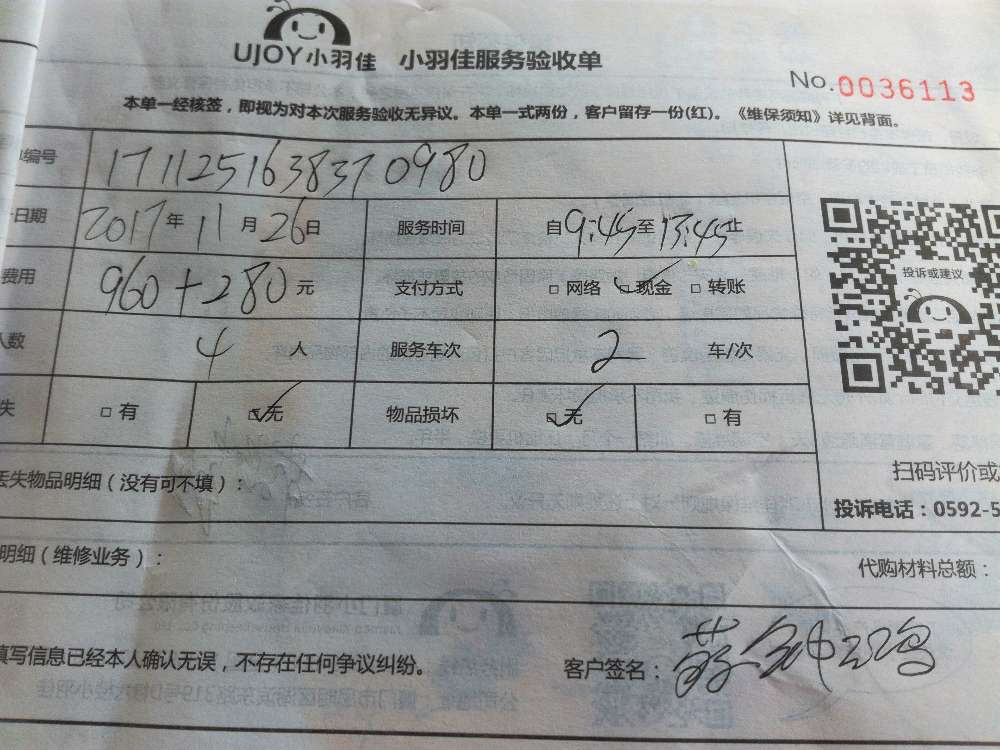 UJOY小羽佳 小羽佳服务验收单
No.0036113
本单一经核签，即视为对本次服务验收无异议。本单一式两份，客户留存一份(红)。《维保须知》详见背面。
编号 171125163837 0980
日期 2017年11月26日 服务时间 自9:45至13:45止
费用 960+280元 支付方式 □ 网络 □ 现金 □ 转账
人数 4 人 服务车次 2 车/次
失 □ 有 □ 无 物品损坏 □ 无 □ 有
投诉或建议
丢失物品明细（没有可不填）：
扫码评价或
投诉电话：0592-5
明细（维修业务）：
代购材料总额：
填写信息已经本人确认无误，不存在任何争议纠纷。 客户签名：